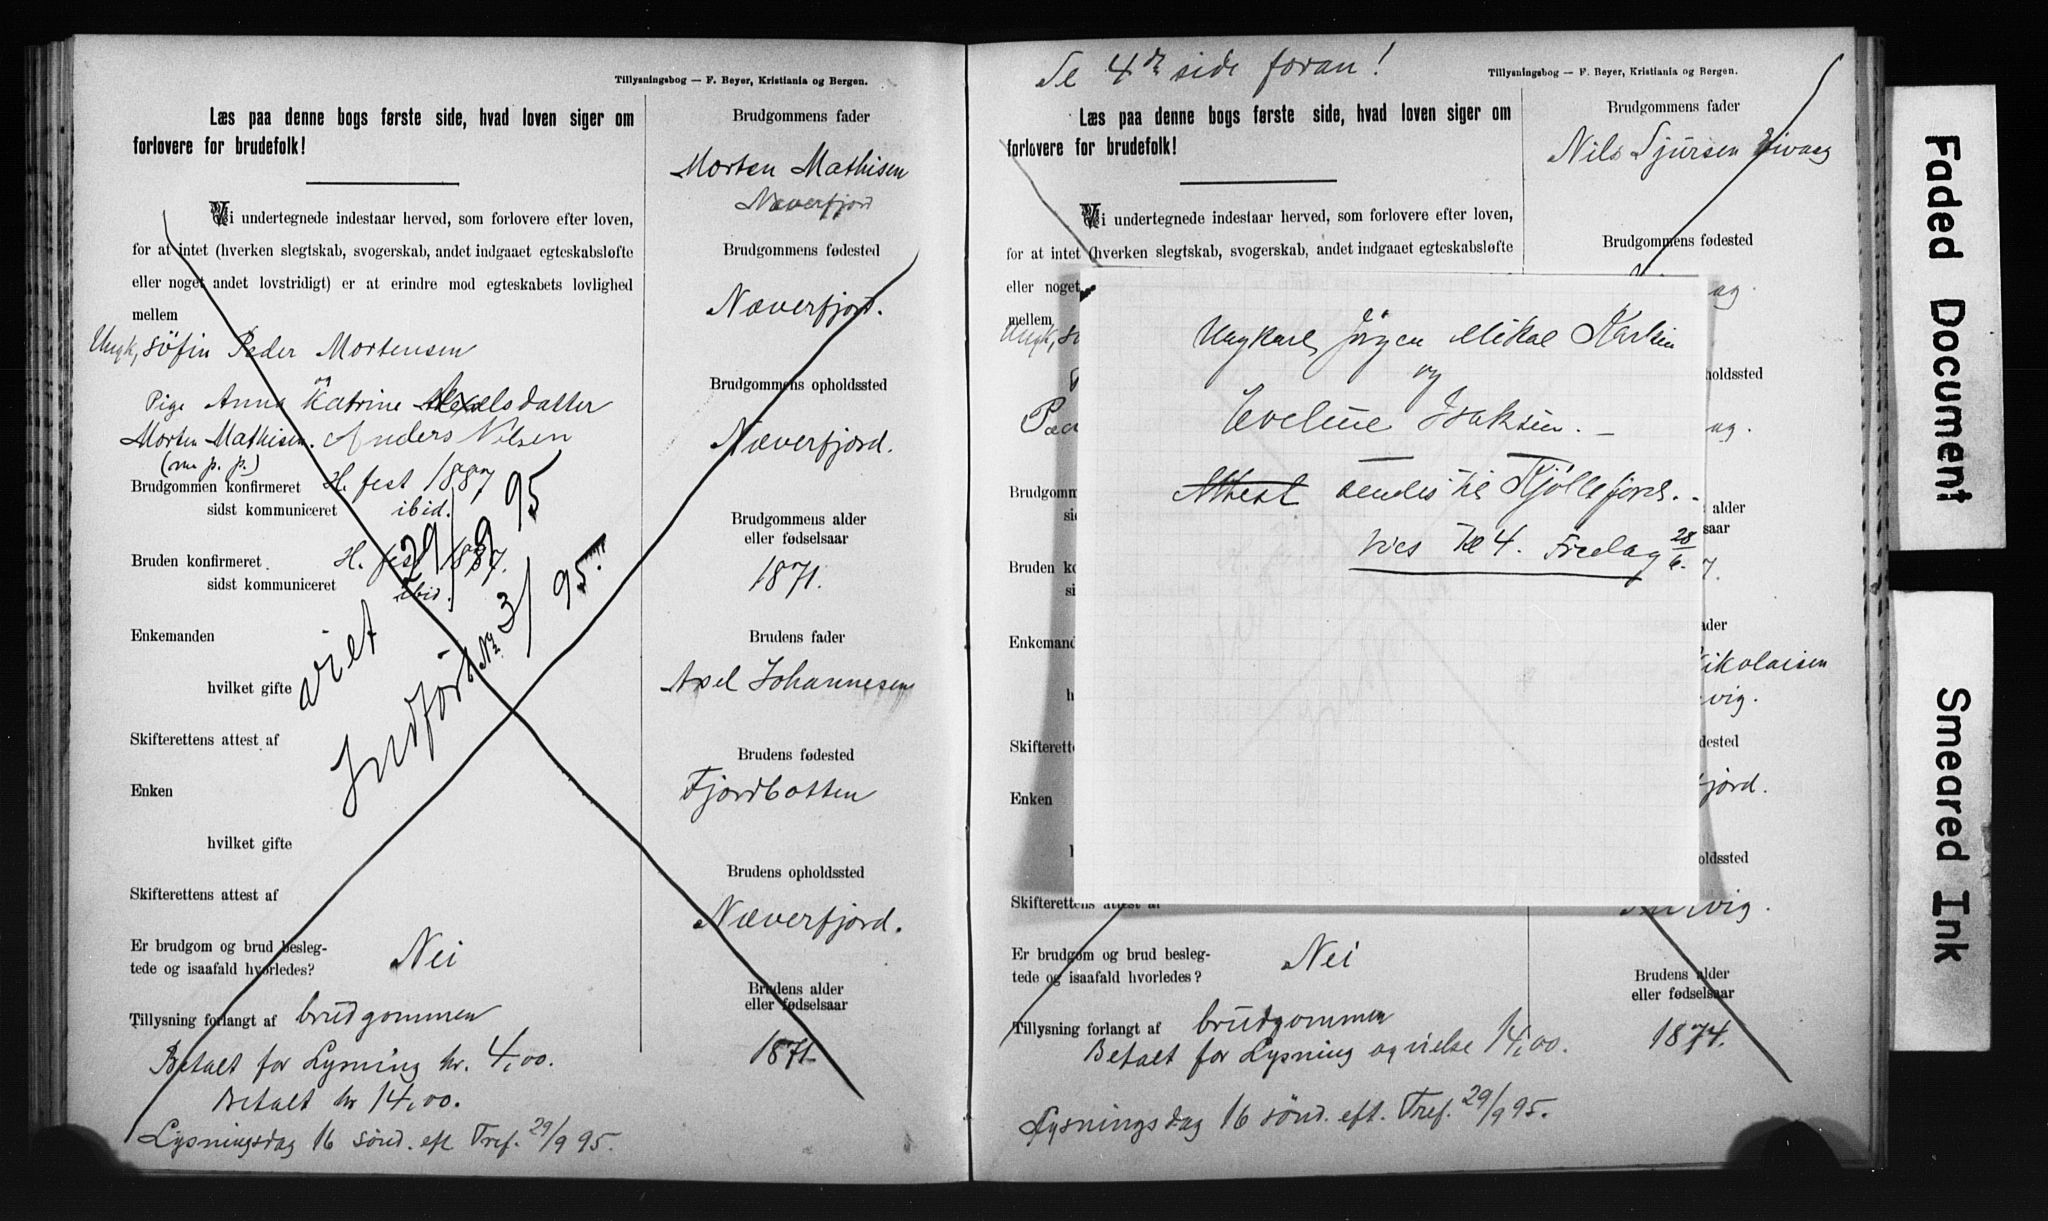 Tillysningsbog — F. Beyer, Kristiania og Bergen.
Læs paa denne bogs første side, hvad loven siger om
forlovere for brudefolk!
Vi undertegnede indestaar herved, som forlovere efter loven,
for at intet (hverken slegtskab, svogerskab, andet indgaaet egteskabsløfte
eller noget andet lovstridigt) er at erindre mod egteskabets lovlighed
mellem
Ungk, Söfin Peder Mortensen
og
Pige Anna Katrine Axelsdatter
Morten Mathisen. Anders Nilsen
(m. p. p.)
Brudgommen konfirmeret H. fest 1887
sidst kommuniceret ibid.
Bruden konfirmeret H. fest 1887.
sidst kommuniceret ibid.
viet 29/9 95
Indført No 3/95.
Enkemanden
hvilket gifte
Skifterettens attest af
Enken
hvilket gifte
Skifterettens attest af
Er brudgom og brud besleg-
tede og isaafald hvorledes? Nei
Tillysning forlangt af brudgommen
Betalt for Lysning kr. 4,00.
Betalt kr 14,00.
Lysningsdag 16 sönd. eft Tref. 29/9 95.
Brudgommens fader
Morten Mathisen
Næverfjord
Brudgommens fødested
Næverfjord.
Brudgommens opholdssted
Næverfjord.
Brudgommens alder
eller fødselsaar
1871.
Brudens fader
Axel Johannesen
Brudens fødested
Fjordbotten
Brudens opholdssted
Næverfjord.
Brudens alder
eller fødselsaar
1871.
Se 4de side foran!
Tillysningsbog — F. Beyer, Kristiania og Bergen.
Læs paa denne bogs første side, hvad loven siger om
forlovere for brudefolk!
Vi undertegnede indestaar herved, som forlovere efter loven,
for at intet (hverken slegtskab, svogerskab, andet indgaaet egteskabsløfte
eller noget
mellem
Ungk,
Brudgomm
Bruden
Enkemand
Skifterett
Enken
Skifterettens attest af
Er brudgom og brud besleg-
tede og isaafald hvorledes? Nei
Tillysning forlangt af brudgommen
Betalt for Lysning og vielse 14,00.
Lysningsdag 16 sönd. eft. Tref. 29/9 95.
Ungkarl Jörgen Mikal Karlsen
og
Eveline Isaksen. —
Attest sendes til Kjöllefjord. -
Vies Kl 4. Fredag 28/6.
Brudgommens fader
Nils Sjursen
Brudgommens fødested
ag.
holdssted
ag.
alder
saar
7.
ader
Nikolaisen
vig.
dested
fjord.
oldssted
vig.
Brudens alder
eller fødselsaar
1874.
Faded Document
Smeared Ink